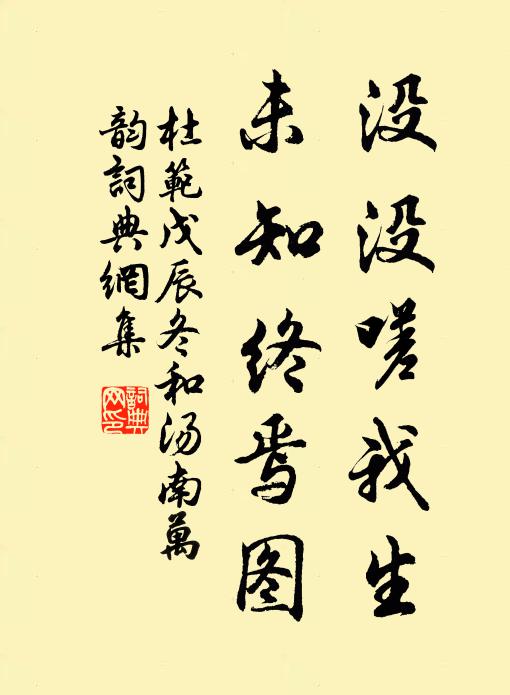 没没嗟我生
未知终焉图
杜範戊辰冬和汤南萬
韵詞典網集
詞典
网印